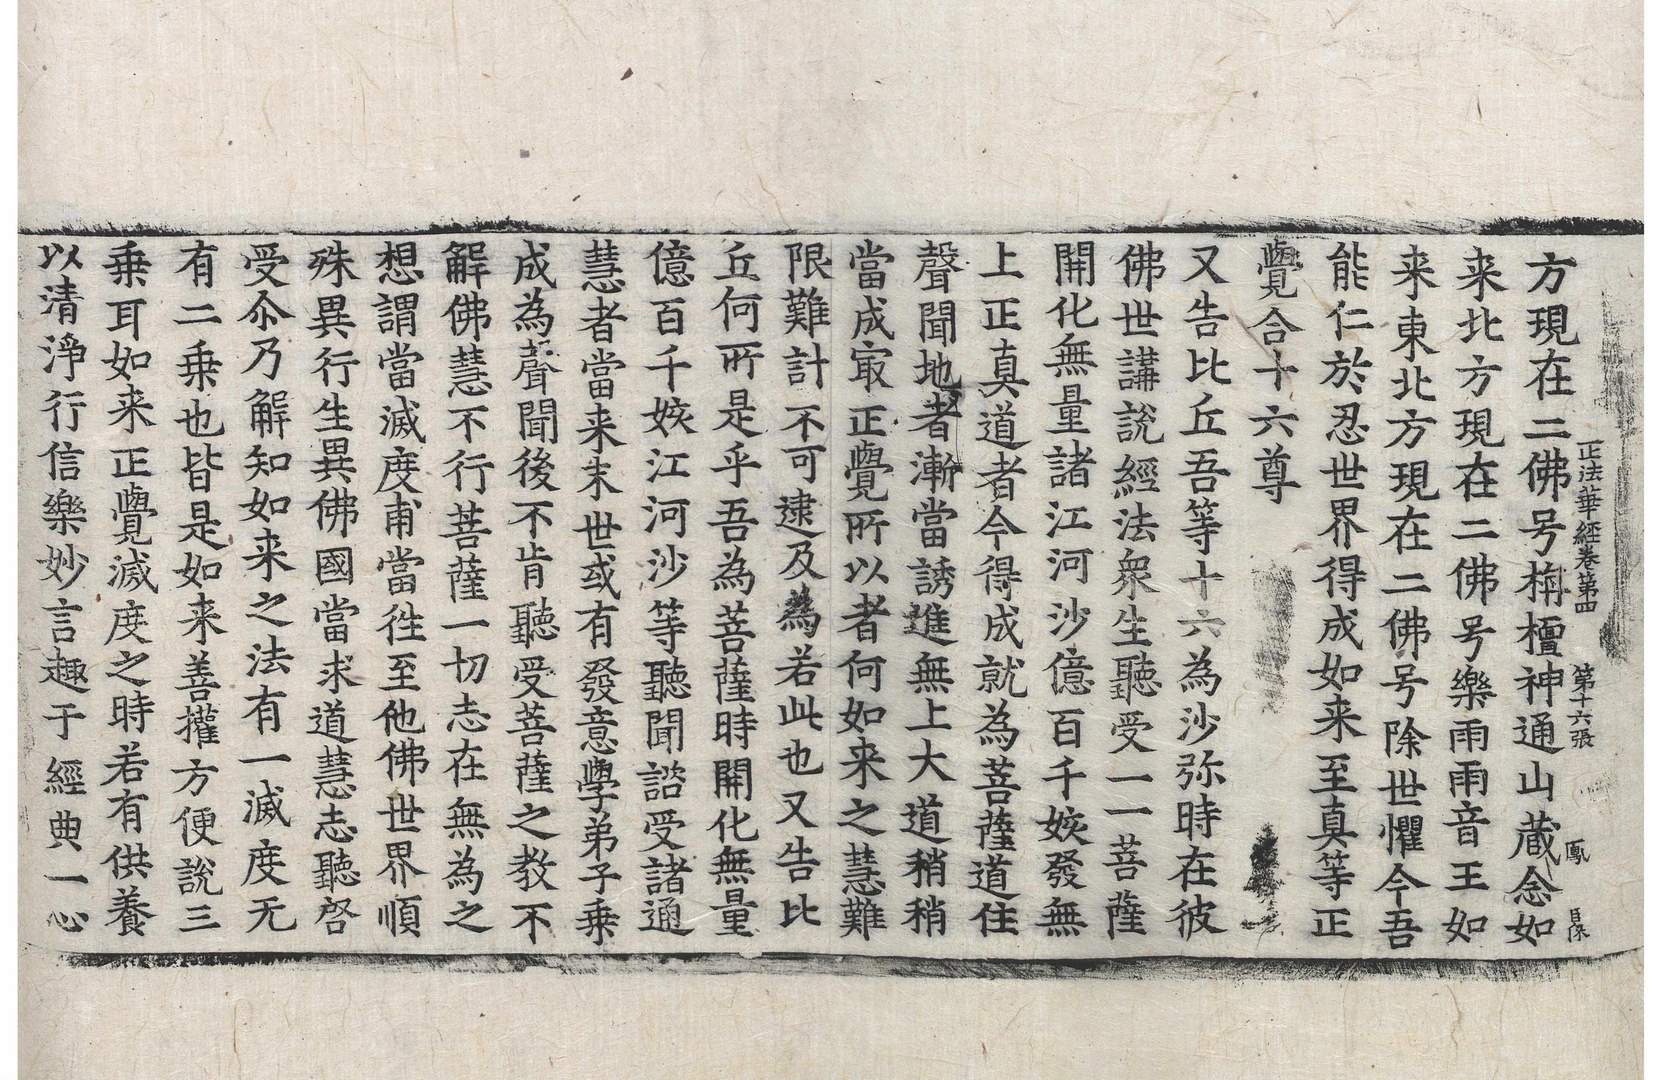 正法華經卷第四 第十六張 鳳
方現在二佛号栴檀神通山蔵念如
来北方現在二佛号樂雨雨音王如
来東北方現在二佛号除世懼今吾
能仁於忍世界得成如来至真等正
覺合十六尊
又告比丘吾等十六為沙弥時在彼
佛世講說經法衆生聽受一一菩薩
開化無量諸江河沙億百千姟發無
上正真道者今得成就為菩薩道住
聲聞地者漸當誘進無上大道稍稍
當成冣正覺所以者何如来之慧難
限難計不可逮及為若此也又告比
丘何所是乎吾為菩薩時開化無量
億百千姟江河沙等聽聞諮受諸通
慧者當来末世或有發意學弟子乗
成為聲聞後不肯聽受菩薩之教不
解佛慧不行菩薩一切志在無為之
想謂當滅度甫當徃至他佛世界順
殊異行生異佛國當求道慧志聽啓
受尒乃解知如来之法有一滅度无
有二乗也皆是如来善權方便說三
乗耳如来正覺滅度之時若有供養
以清淨行信樂妙言趣于經典一心